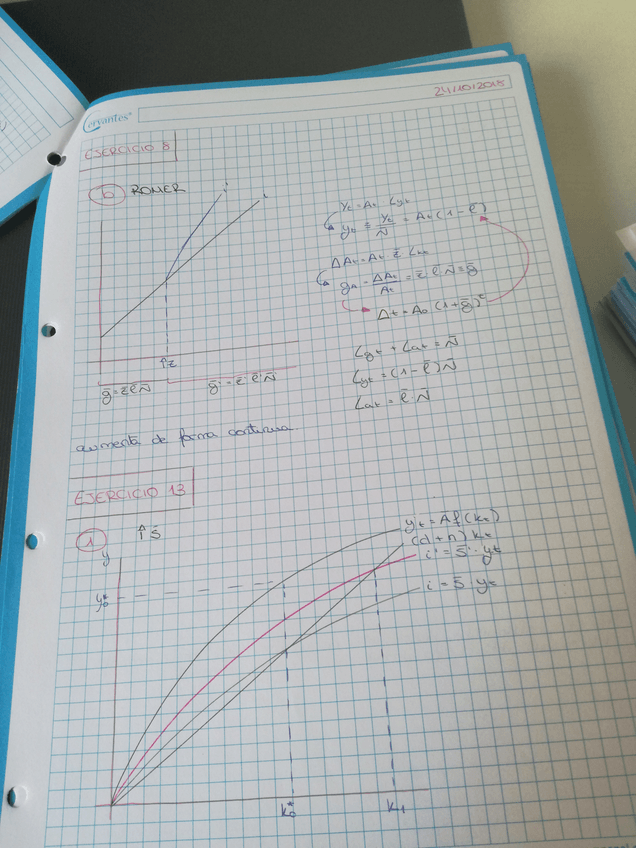 cervantes
24/10/2018
EJERCICIO 8
b ROMER
Yt = At Lyt
yt ≡ Yt/N̄ = At (1 - ℓ̄)
ΔAt = At z̄ Lat
gA = ΔAt/At = z̄ ℓ̄ N̄ = ḡ
At = A0 (1 + ḡ)^t
Lyt + Lat = N̄
Lyt = (1 - ℓ̄) N̄
Lat = ℓ̄ · N̄
↑z̄
ḡ = z̄ ℓ̄ N̄
ḡ' = z̄' ℓ̄ N̄
aumenta de forma continua
EJERCICIO 13
1 ↑ s̄
y
yt = Af(kt)
(d + n) kt
i' = s̄' · yt
i = s̄ yt
y0*
k0*
k1